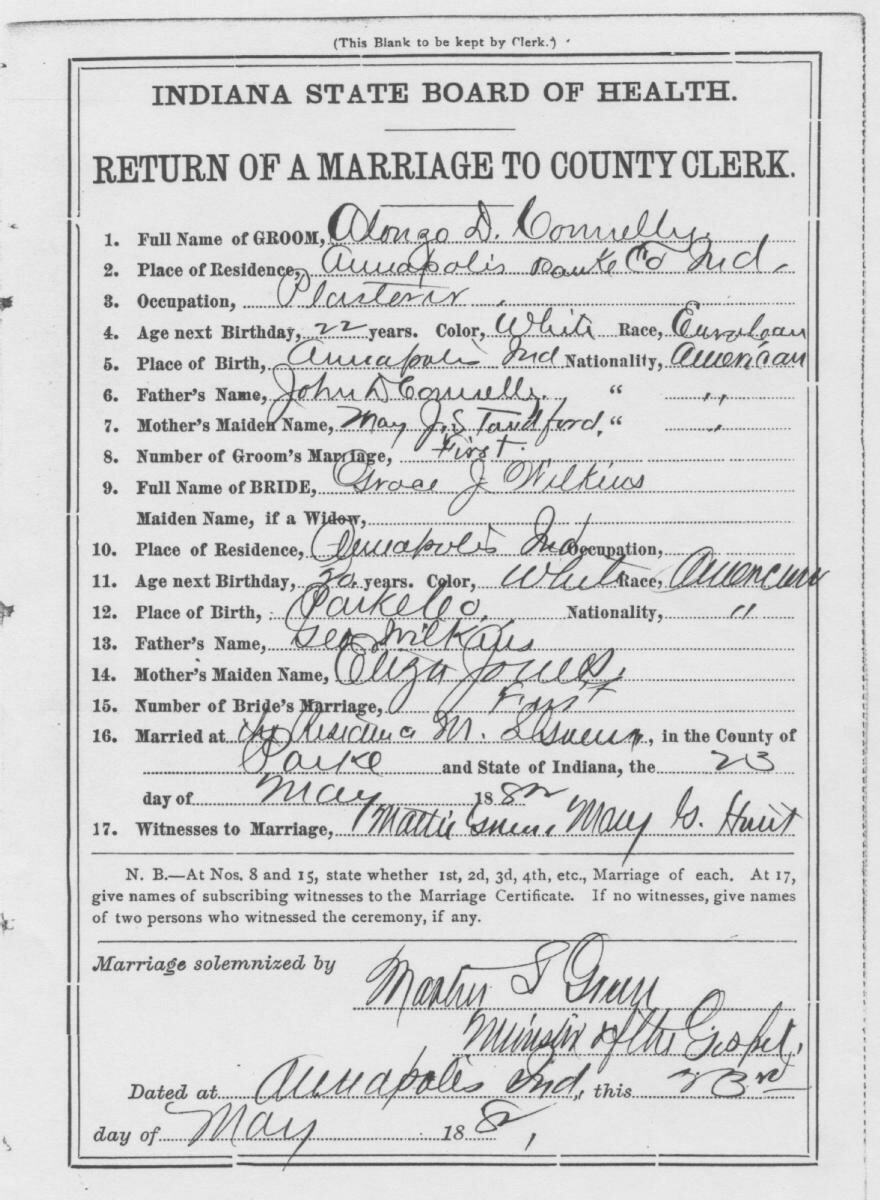 (This Blank to be kept by Clerk.)
INDIANA STATE BOARD OF HEALTH.
RETURN OF A MARRIAGE TO COUNTY CLERK.
1. Full Name of GROOM, Alonzo D. Connelly.
2. Place of Residence, Annapolis Parke Co Ind.
3. Occupation, Plasterer
4. Age next Birthday, 22 years. Color, White Race, European
5. Place of Birth, Annapolis Ind Nationality, American
6. Father's Name, John D Connelly. " "
7. Mother's Maiden Name, May J. Standford, " "
8. Number of Groom's Marriage, First.
9. Full Name of BRIDE, Grace J Wilkins
Maiden Name, if a Widow,
10. Place of Residence, Annapolis Ind Occupation,
11. Age next Birthday, years. Color, White Race, American
12. Place of Birth, Parke Co, Nationality, "
13. Father's Name, Geo Wilkins
14. Mother's Maiden Name, Eliza Jones,
15. Number of Bride's Marriage, First
16. Married at the Residence M. S Green, in the County of
Parke and State of Indiana, the 23
day of May 1882
17. Witnesses to Marriage, Mattie Green, Mary G. Hunt
N. B.—At Nos. 8 and 15, state whether 1st, 2d, 3d, 4th, etc., Marriage of each. At 17,
give names of subscribing witnesses to the Marriage Certificate. If no witnesses, give names
of two persons who witnessed the ceremony, if any.
Marriage solemnized by
S Green
Minister of the Gospel.
Dated at Annapolis Ind, this 23rd
day of May 1882,